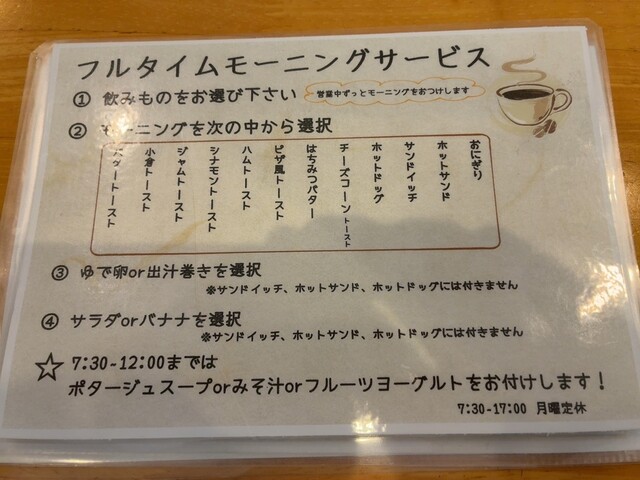 フルタイムモーニングサービス
① 飲みものをお選び下さい
営業中ずっとモーニングをおつけします
② モーニングを次の中から選択
おにぎり
ホットサンド
サンドイッチ
ホットドッグ
チーズコーントースト
はちみつバター
ピザ風トースト
ハムトースト
シナモントースト
ジャムトースト
小倉トースト
バタートースト
③ ゆで卵or出汁巻きを選択
※サンドイッチ、ホットサンド、ホットドッグには付きません
④ サラダorバナナを選択
※サンドイッチ、ホットサンド、ホットドッグには付きません
☆ 7:30~12:00までは
ポタージュスープorみそ汁orフルーツヨーグルトをお付けします！
7:30-17:00 月曜定休